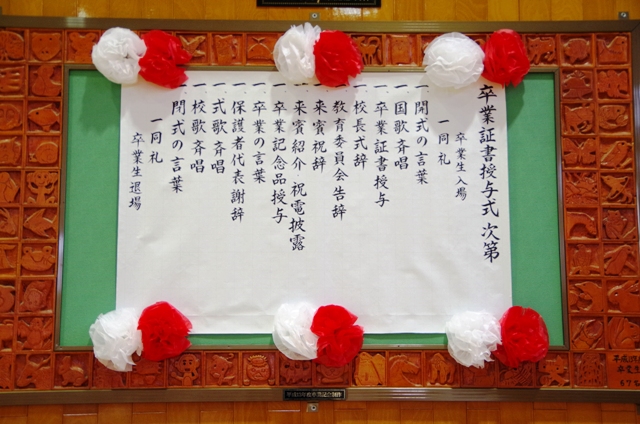 卒業証書授与式 次第
卒業生入場
一同礼
一 開式の言葉
一 国歌斉唱
一 卒業証書授与
一 校長式辞
一 教育委員会告辞
一 来賓祝辞
一 来賓紹介・祝電披露
一 卒業記念品授与
一 卒業の言葉
一 保護者代表謝辞
一 式歌斉唱
一 校歌斉唱
一 閉式の言葉
一同礼
卒業生退場